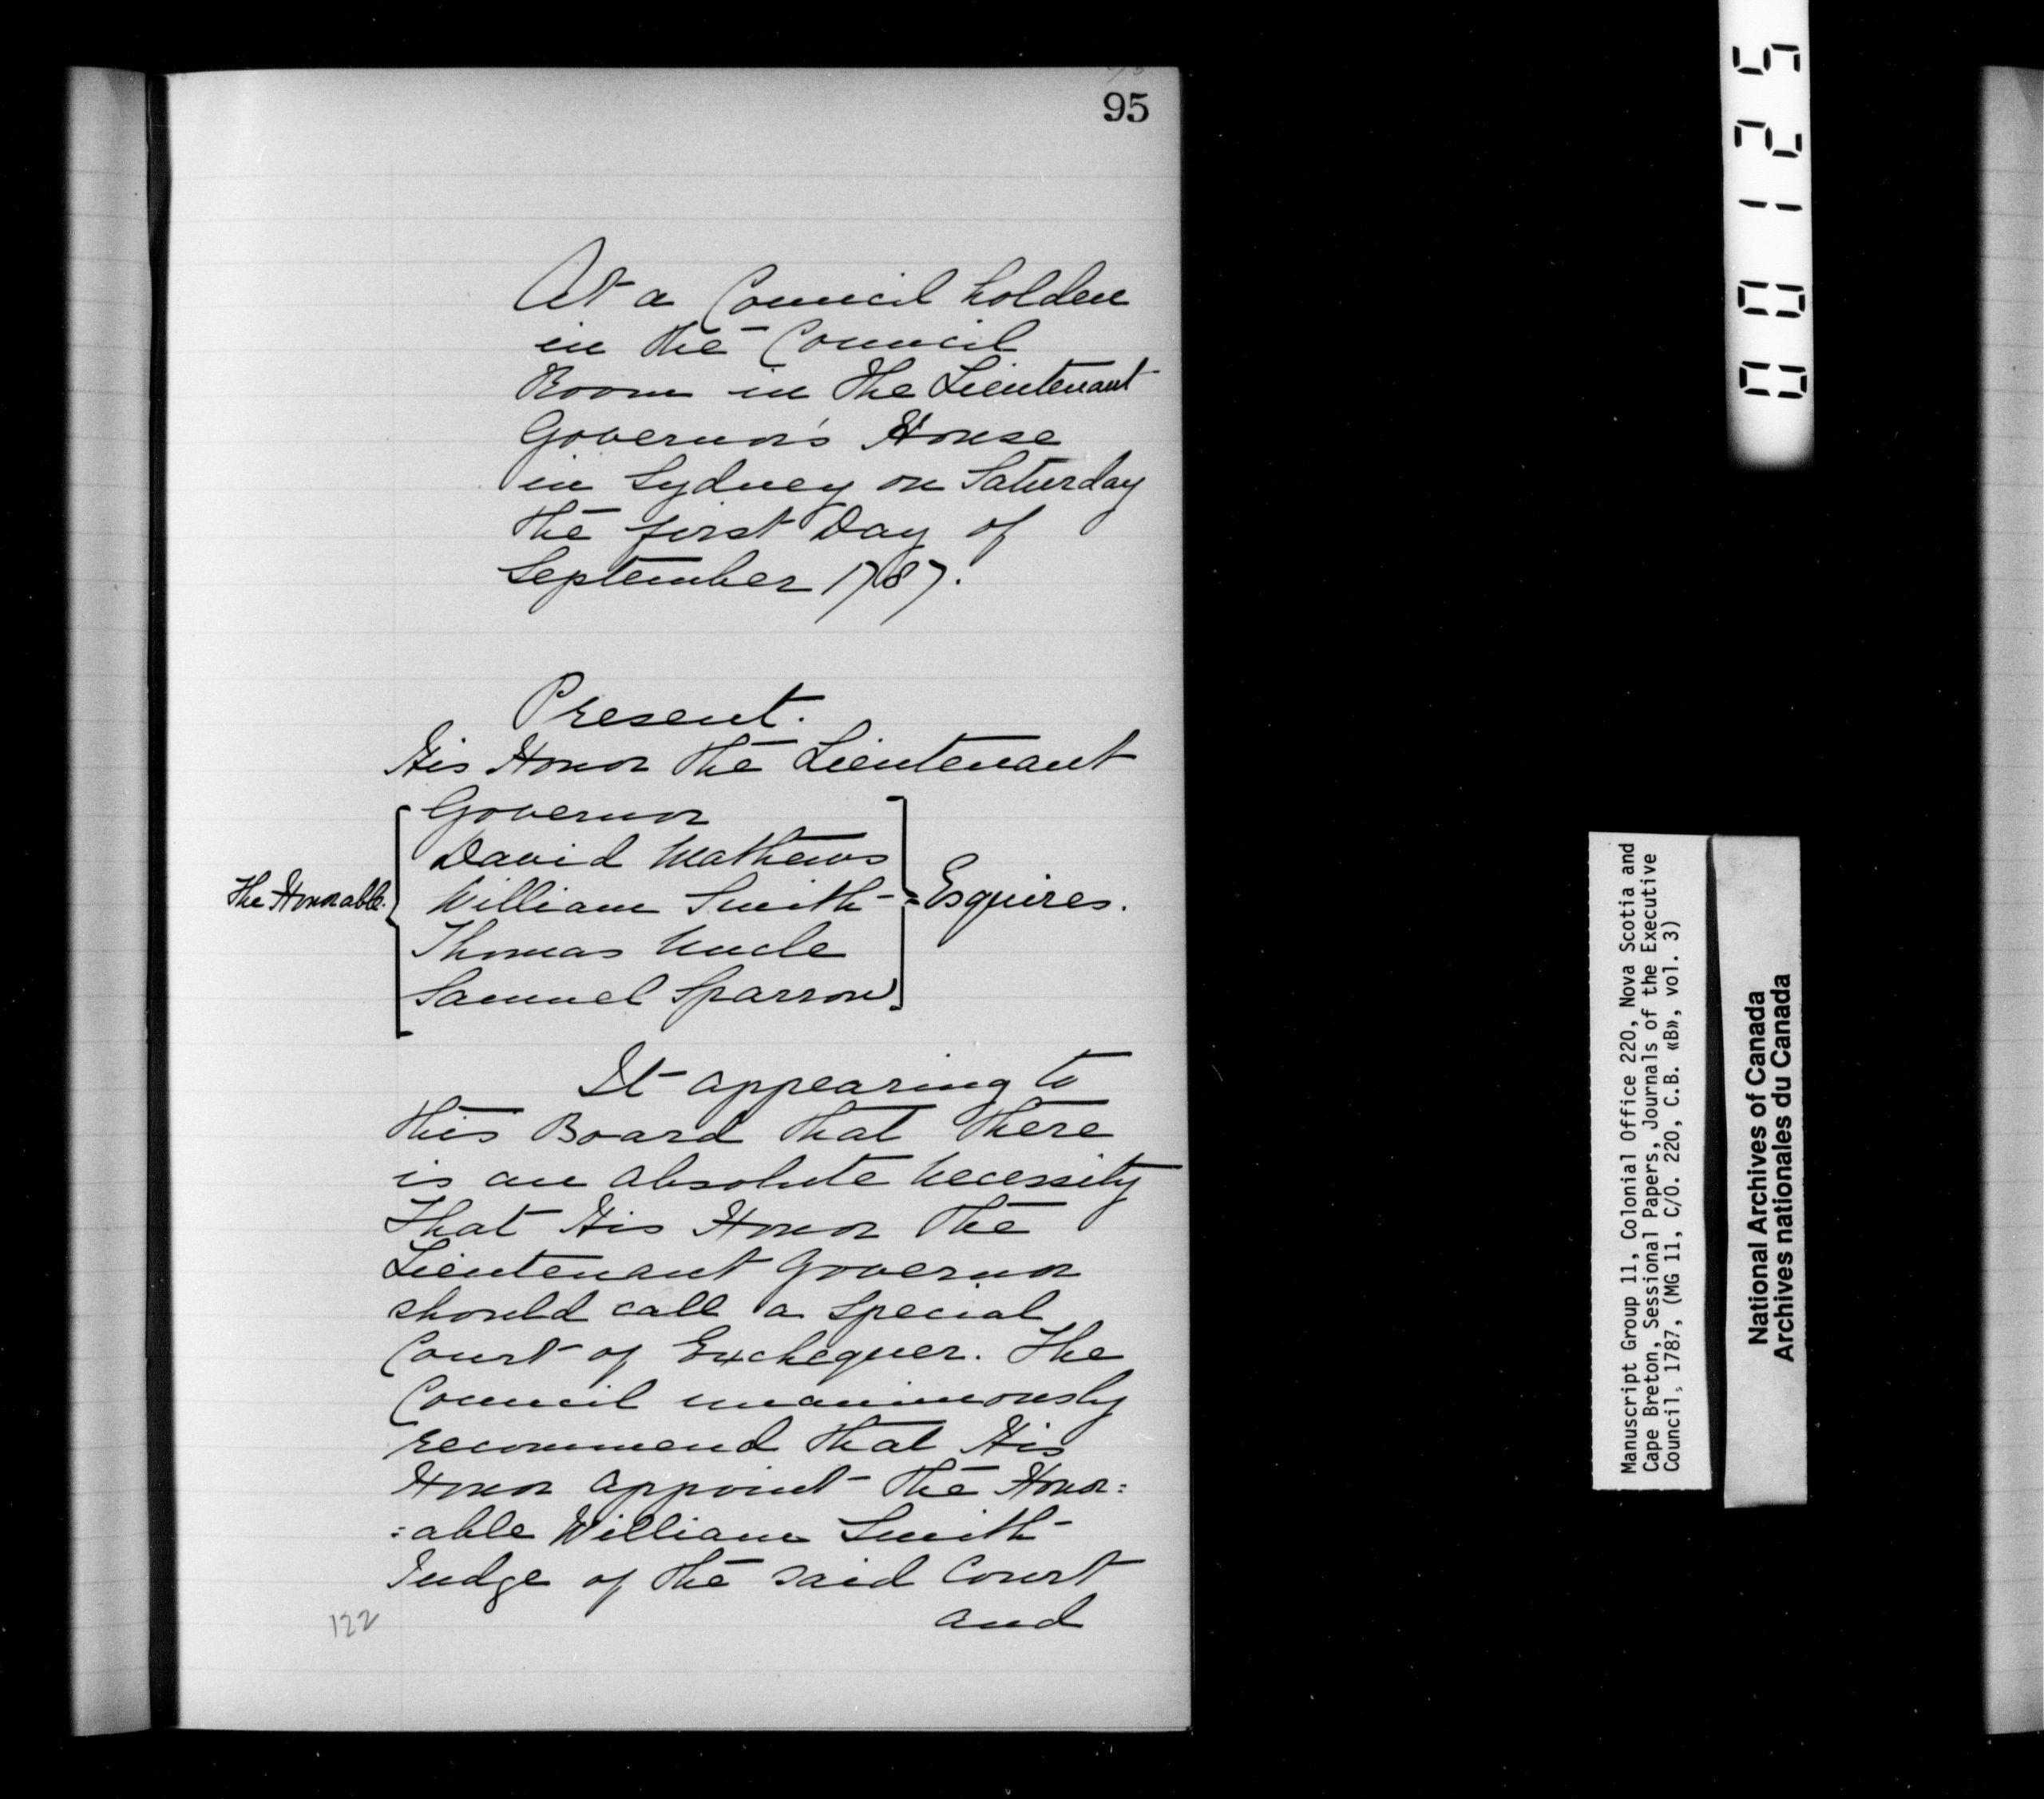 95
At a Council holden
in the Council
Room in the Lieutenant
Governor's House
in Sydney on Saturday
the first Day of
September 1787.
Present.
His Honor the Lieutenant
Governor
David Mathews
The Honorable. William Smith = Esquires.
Thomas Uncle
Samuel Sparrow
It appearing to
this Board that there
is an absolute necessity
that His Honor the
Lieutenant Governor
should call a special
Court of Exchequer. The
Council unanimously
recommend that His
Honor appoint the Honor=
=able William Smith
Judge of the said Court
and
122
000125
Manuscript Group 11, Colonial Office 220, Nova Scotia and
Cape Breton, Sessional Papers, Journals of the Executive
Council, 1787, (MG 11, C/O. 220, C.B. «B», vol. 3)
National Archives of Canada
Archives nationales du Canada